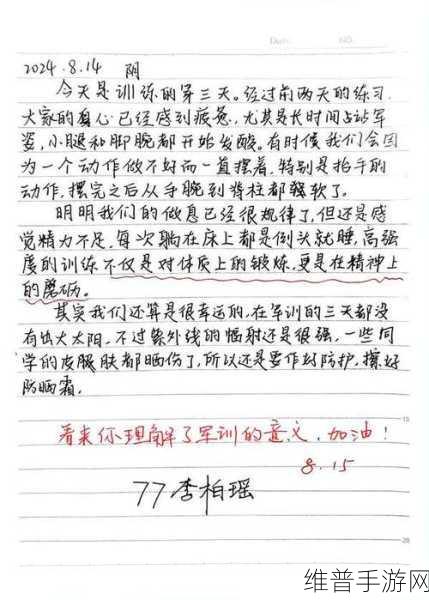 Date: NO.
2024.8.14 阴
今天是训练的第三天。经过前两天的练习,
大家的身心已经感到疲惫,尤其是长时间占站军
姿,小腿和脚腕都开始发酸。有时候我们会因
为一个动作做不好而一直摆着,特别是抬手的
动作,摆完之后从手腕到脊柱都酸软了。
明明我们的做息已经很规律了,但还是感
觉精力不足,每次躺在床上都是倒头就睡,高强
度的训练不仅是对体质上的锻炼,更是在精神上
的磨砺。
其实我们还算是很幸运的,在军训的三天都没
有出大太阳,不过紫外线的辐射还是很强,一些同
学的皮肤都晒伤了,所以还是要作好防护,擦好
防晒霜.
15
看来你理解了军训的意义,加油!
8.15
77李柏瑶
20
维普手游网